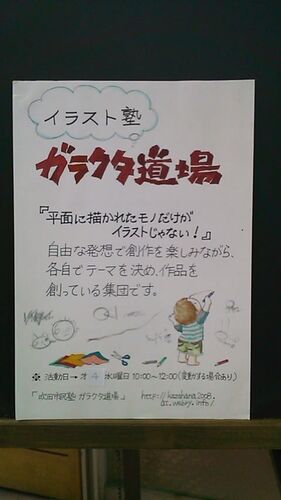 イラスト塾
ガラクタ道場
『平面に描かれたモノだけが
イラストじゃない！』
自由な発想で創作を楽しみながら、
各自でテーマを決め、作品を
創っている集団です。
※ 活動日→ 第4水曜日 10:00～12:00(変動する場合あり)
「吹田市民塾 ガラクタ道場」
http://kazahana2008.
at.webry.info/